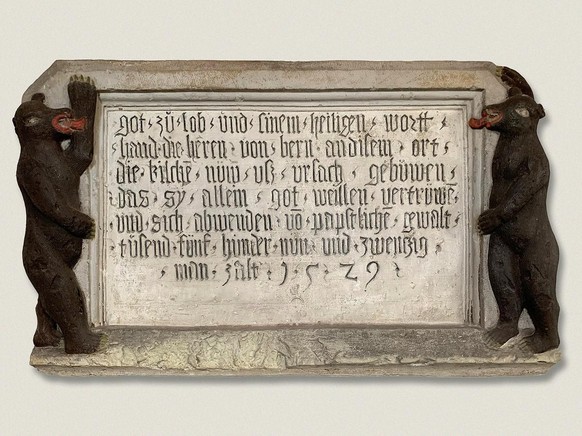 got · zů · lob · vnd · sinem · heiligen · wortt ·
hand · die · heren · von · bern · an disem · ort ·
die · kilche · nüw · vß · vrsach · gebüwen
das · sy · allein · got · wellen · vertrüwē
vnd · sich · abwenden · vō · papstliche · gewalt ·
tusend · fünf · hunder · nün · vnd · zwentzig
· man · zalt · 1 · 5 · 2 9 ·